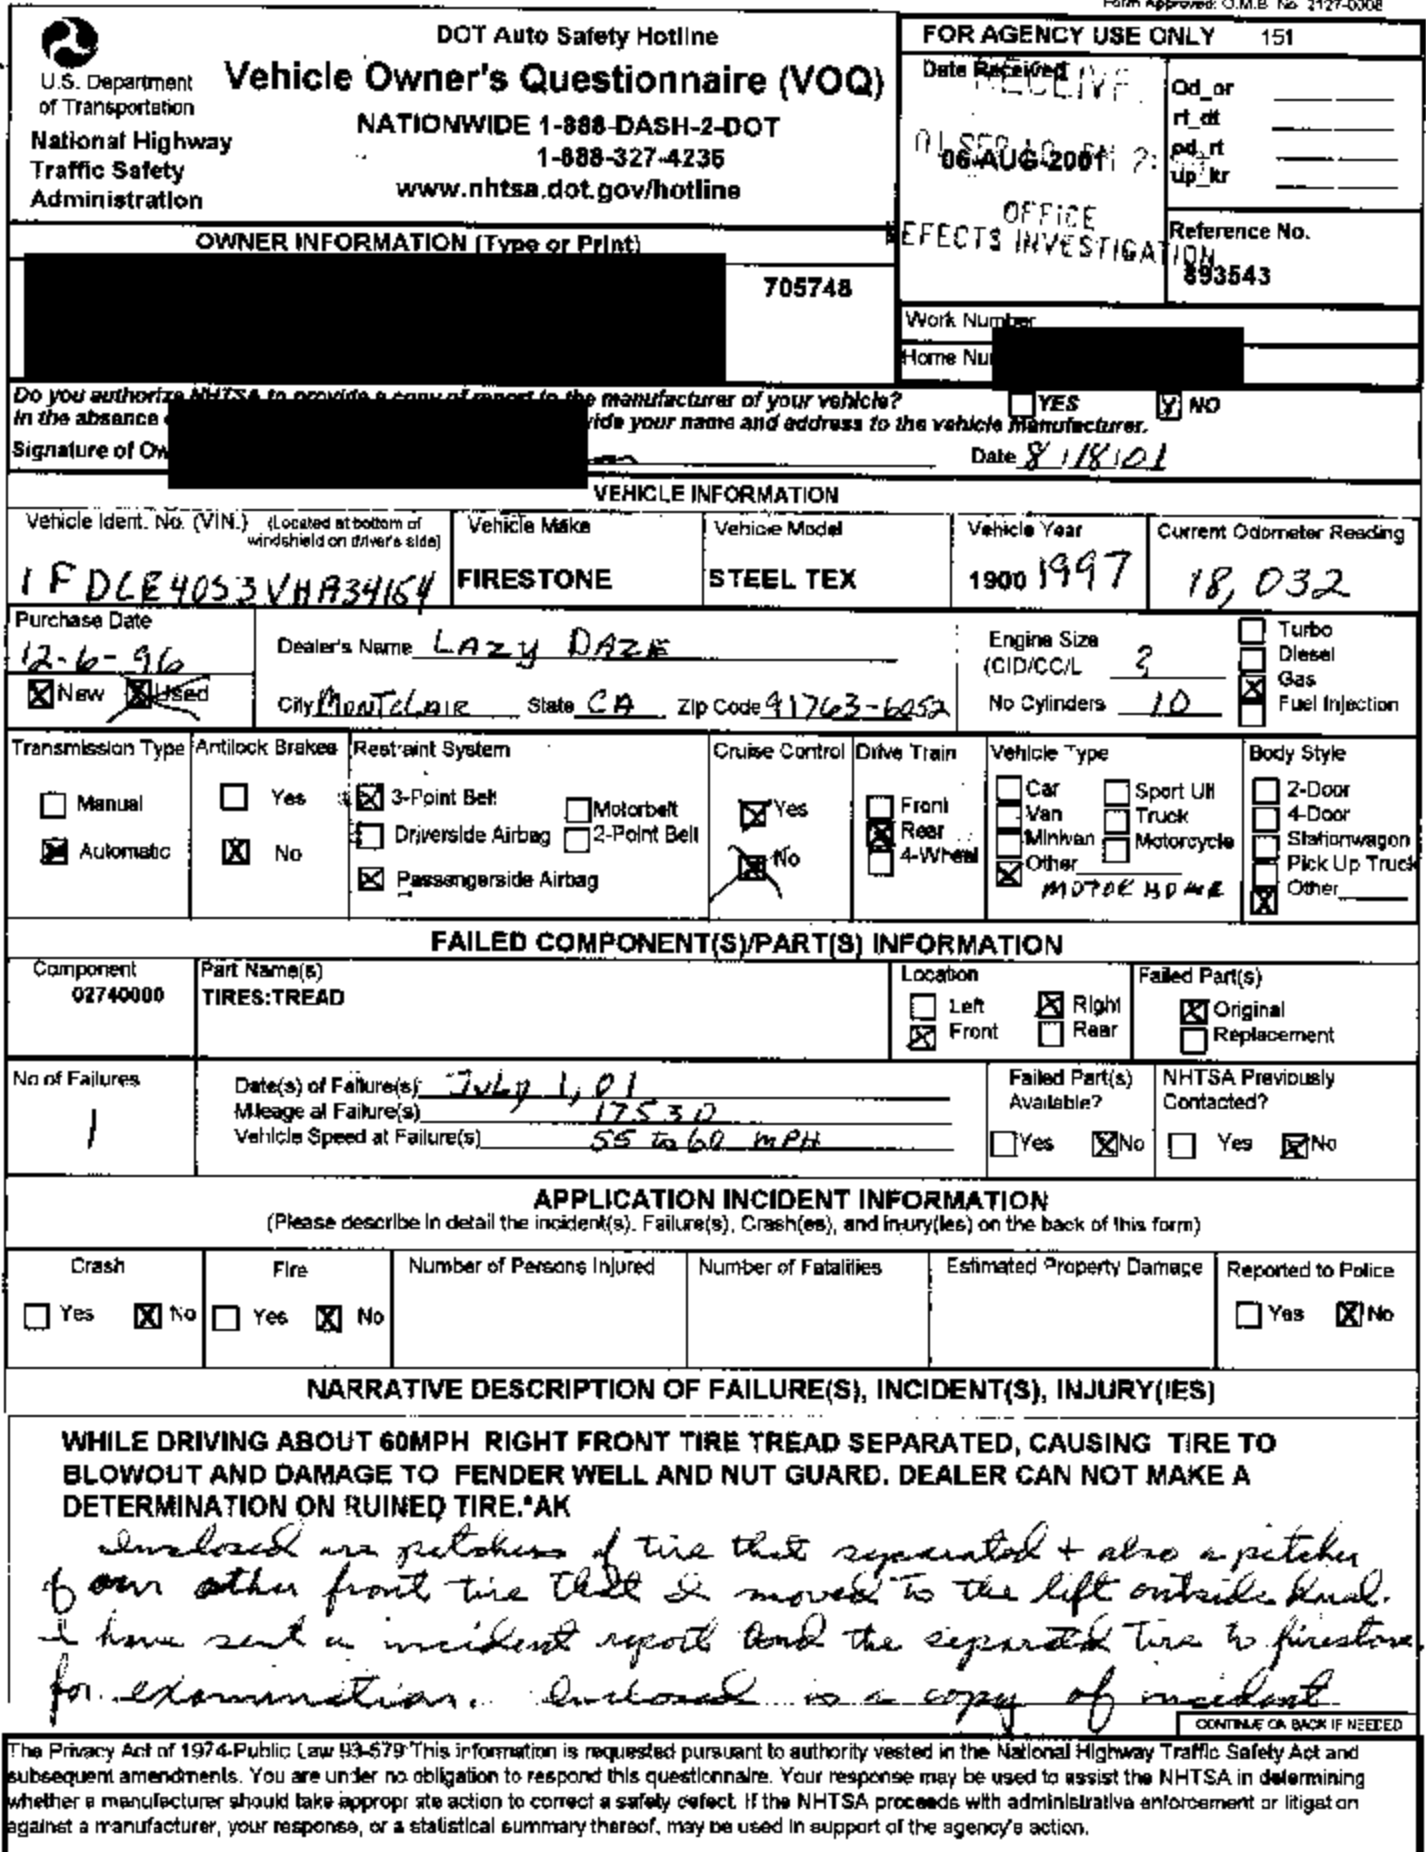 Form Approved: O.M.B. No. 2127-0008
U.S. Department
of Transportation
National Highway
Traffic Safety
Administration
DOT Auto Safety Hotline
Vehicle Owner's Questionnaire (VOQ)
NATIONWIDE 1-888-DASH-2-DOT
1-888-327-4236
www.nhtsa.dot.gov/hotline
FOR AGENCY USE ONLY 151
Date Received
06-AUG-2001
OFFICE
EFECTS INVESTIGATION
Od_or
rt_dt
od_rt
up_kr
Reference No.
893543
OWNER INFORMATION (Type or Print)
705748
Work Number
Home Nu
Do you authorize NHTSA to provide a copy of report to the manufacturer of your vehicle?
YES
NO
In the absence
vide your name and address to the vehicle Manufacturer.
Signature of Ow
Date 8/18/01
VEHICLE INFORMATION
Vehicle Ident. No. (VIN.) (Located at bottom of windshield on driver's side)
1FDLE40S3VHA34164
Vehicle Make
FIRESTONE
Vehicle Model
STEEL TEX
Vehicle Year
1900 1997
Current Odometer Reading
18,032
Purchase Date
12-6-96
New
Used
Dealer's Name LAZY DAZE
City MONTCLAIR State CA Zip Code 91763-6052
Engine Size
(CID/CC/L ?
No Cylinders 10
Turbo
Diesel
Gas
Fuel Injection
Transmission Type
Manual
Automatic
Antilock Brakes
Yes
No
Restraint System
3-Point Belt
Motorbelt
Driverside Airbag
2-Point Belt
Passengerside Airbag
Cruise Control
Yes
No
Drive Train
Front
Rear
4-Wheel
Vehicle Type
Car
Van
Minivan
Other
Sport Util
Truck
Motorcycle
MOTOR HOME
Body Style
2-Door
4-Door
Stationwagon
Pick Up Truck
Other
FAILED COMPONENT(S)/PART(S) INFORMATION
Component
02740000
Part Name(s)
TIRES:TREAD
Location
Left
Right
Front
Rear
Failed Part(s)
Original
Replacement
No of Failures
1
Date(s) of Failure(s) July 1, 01
Mileage at Failure(s) 17530
Vehicle Speed at Failure(s) 55 to 60 MPH
Failed Part(s)
Available?
Yes
No
NHTSA Previously
Contacted?
Yes
No
APPLICATION INCIDENT INFORMATION
(Please describe in detail the incident(s), Failure(s), Crash(es), and injury(ies) on the back of this form)
Crash
Yes
No
Fire
Yes
No
Number of Persons Injured
Number of Fatalities
Estimated Property Damage
Reported to Police
Yes
No
NARRATIVE DESCRIPTION OF FAILURE(S), INCIDENT(S), INJURY(IES)
WHILE DRIVING ABOUT 60MPH RIGHT FRONT TIRE TREAD SEPARATED, CAUSING TIRE TO
BLOWOUT AND DAMAGE TO FENDER WELL AND NUT GUARD. DEALER CAN NOT MAKE A
DETERMINATION ON RUINED TIRE.*AK
Inclosed are pitchers of tire that seperated + also a pitcher
of our other front tire that I moved to the lift outside dual.
I have sent a incident report and the separated tire to firestone
for examination. Inclosed is a copy of incident
CONTINUE ON BACK IF NEEDED
The Privacy Act of 1974-Public Law 93-579 This information is requested pursuant to authority vested in the National Highway Traffic Safety Act and
subsequent amendments. You are under no obligation to respond this questionnaire. Your response may be used to assist the NHTSA in determining
whether a manufacturer should take appropr ate action to correct a safety defect. If the NHTSA proceeds with administrative enforcement or litigation
against a manufacturer, your response, or a statistical summary thereof, may be used in support of the agency's action.